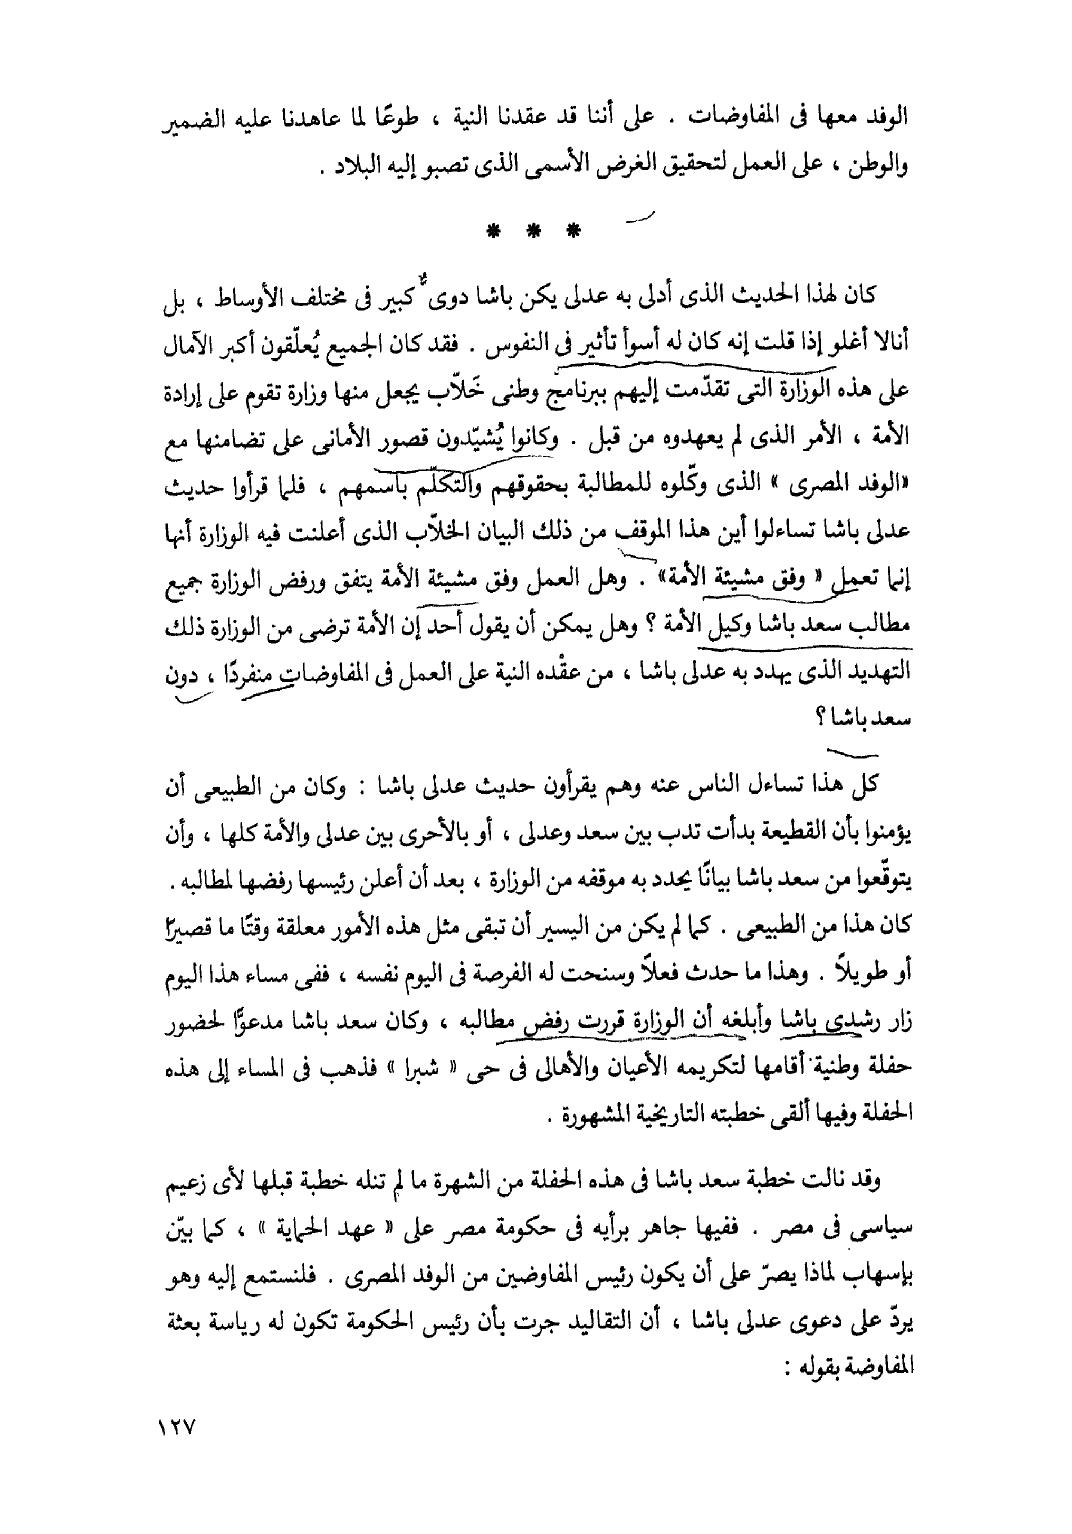 الوفد معها فى المفاوضات . على أننا قد عقدنا النية ، طوعًا لما عاهدنا عليه الضمير
والوطن ، على العمل لتحقيق الغرض الأسمى الذى تصبو إليه البلاد .
* * *
كان لهذا الحديث الذى أدلى به عدلى يكن باشا دوى كبير فى مختلف الأوساط ، بل
أنالا أغلو إذا قلت إنه كان له أسوأ تأثير فى النفوس . فقد كان الجميع يُعلّقون أكبر الآمال
على هذه الوزارة التى تقدّمت إليهم ببرنامج وطنى خَلّاب يجعل منها وزارة تقوم على إرادة
الأمة ، الأمر الذى لم يعهدوه من قبل . وكانوا يُشيّدون قصور الأمانى على تضامنها مع
«الوفد المصرى » الذى وكّلوه للمطالبة بحقوقهم والتكلّم باسمهم ، فلما قرأوا حديث
عدلى باشا تساءلوا أين هذا الموقف من ذلك البيان الخلاّب الذى أعلنت فيه الوزارة أنها
إنما تعمل « وفق مشيئة الأمة» . وهل العمل وفق مشيئة الأمة يتفق ورفض الوزارة جميع
مطالب سعد باشا وكيل الأمة ؟ وهل يمكن أن يقول أحد إن الأمة ترضى من الوزارة ذلك
التهديد الذى يهدد به عدلى باشا ، من عقْده النية على العمل فى المفاوضات منفردًا ، دون
سعد باشا ؟
كل هذا تساءل الناس عنه وهم يقرأون حديث عدلى باشا : وكان من الطبيعى أن
يؤمنوا بأن القطيعة بدأت تدب بين سعد وعدلى ، أو بالأحرى بين عدلى والأمة كلها ، وأن
يتوقّعوا من سعد باشا بيانًا يحدد به موقفه من الوزارة ، بعد أن أعلن رئيسها رفضها لمطالبه .
كان هذا من الطبيعى . كما لم يكن من اليسير أن تبقى مثل هذه الأمور معلقة وقتًا ما قصيرًا
أو طويلاً . وهذا ما حدث فعلاً وسنحت له الفرصة فى اليوم نفسه ، ففى مساء هذا اليوم
زار رشدى باشا وأبلغه أن الوزارة قررت رفض مطالبه ، وكان سعد باشا مدعوًّا لحضور
حفلة وطنية أقامها لتكريمه الأعيان والأهالى فى حى « شبرا » فذهب فى المساء إلى هذه
الحفلة وفيها ألقى خطبته التاريخية المشهورة .
وقد نالت خطبة سعد باشا فى هذه الحفلة من الشهرة ما لم تنله خطبة قبلها لأى زعيم
سياسى فى مصر . ففيها جاهر برأيه فى حكومة مصر على « عهد الحماية » ، كما بيّن
بإسهاب لماذا يصرّ على أن يكون رئيس المفاوضين من الوفد المصرى . فلنستمع إليه وهو
يردّ على دعوى عدلى باشا ، أن التقاليد جرت بأن رئيس الحكومة تكون له رياسة بعثة
المفاوضة بقوله :
١٢٧